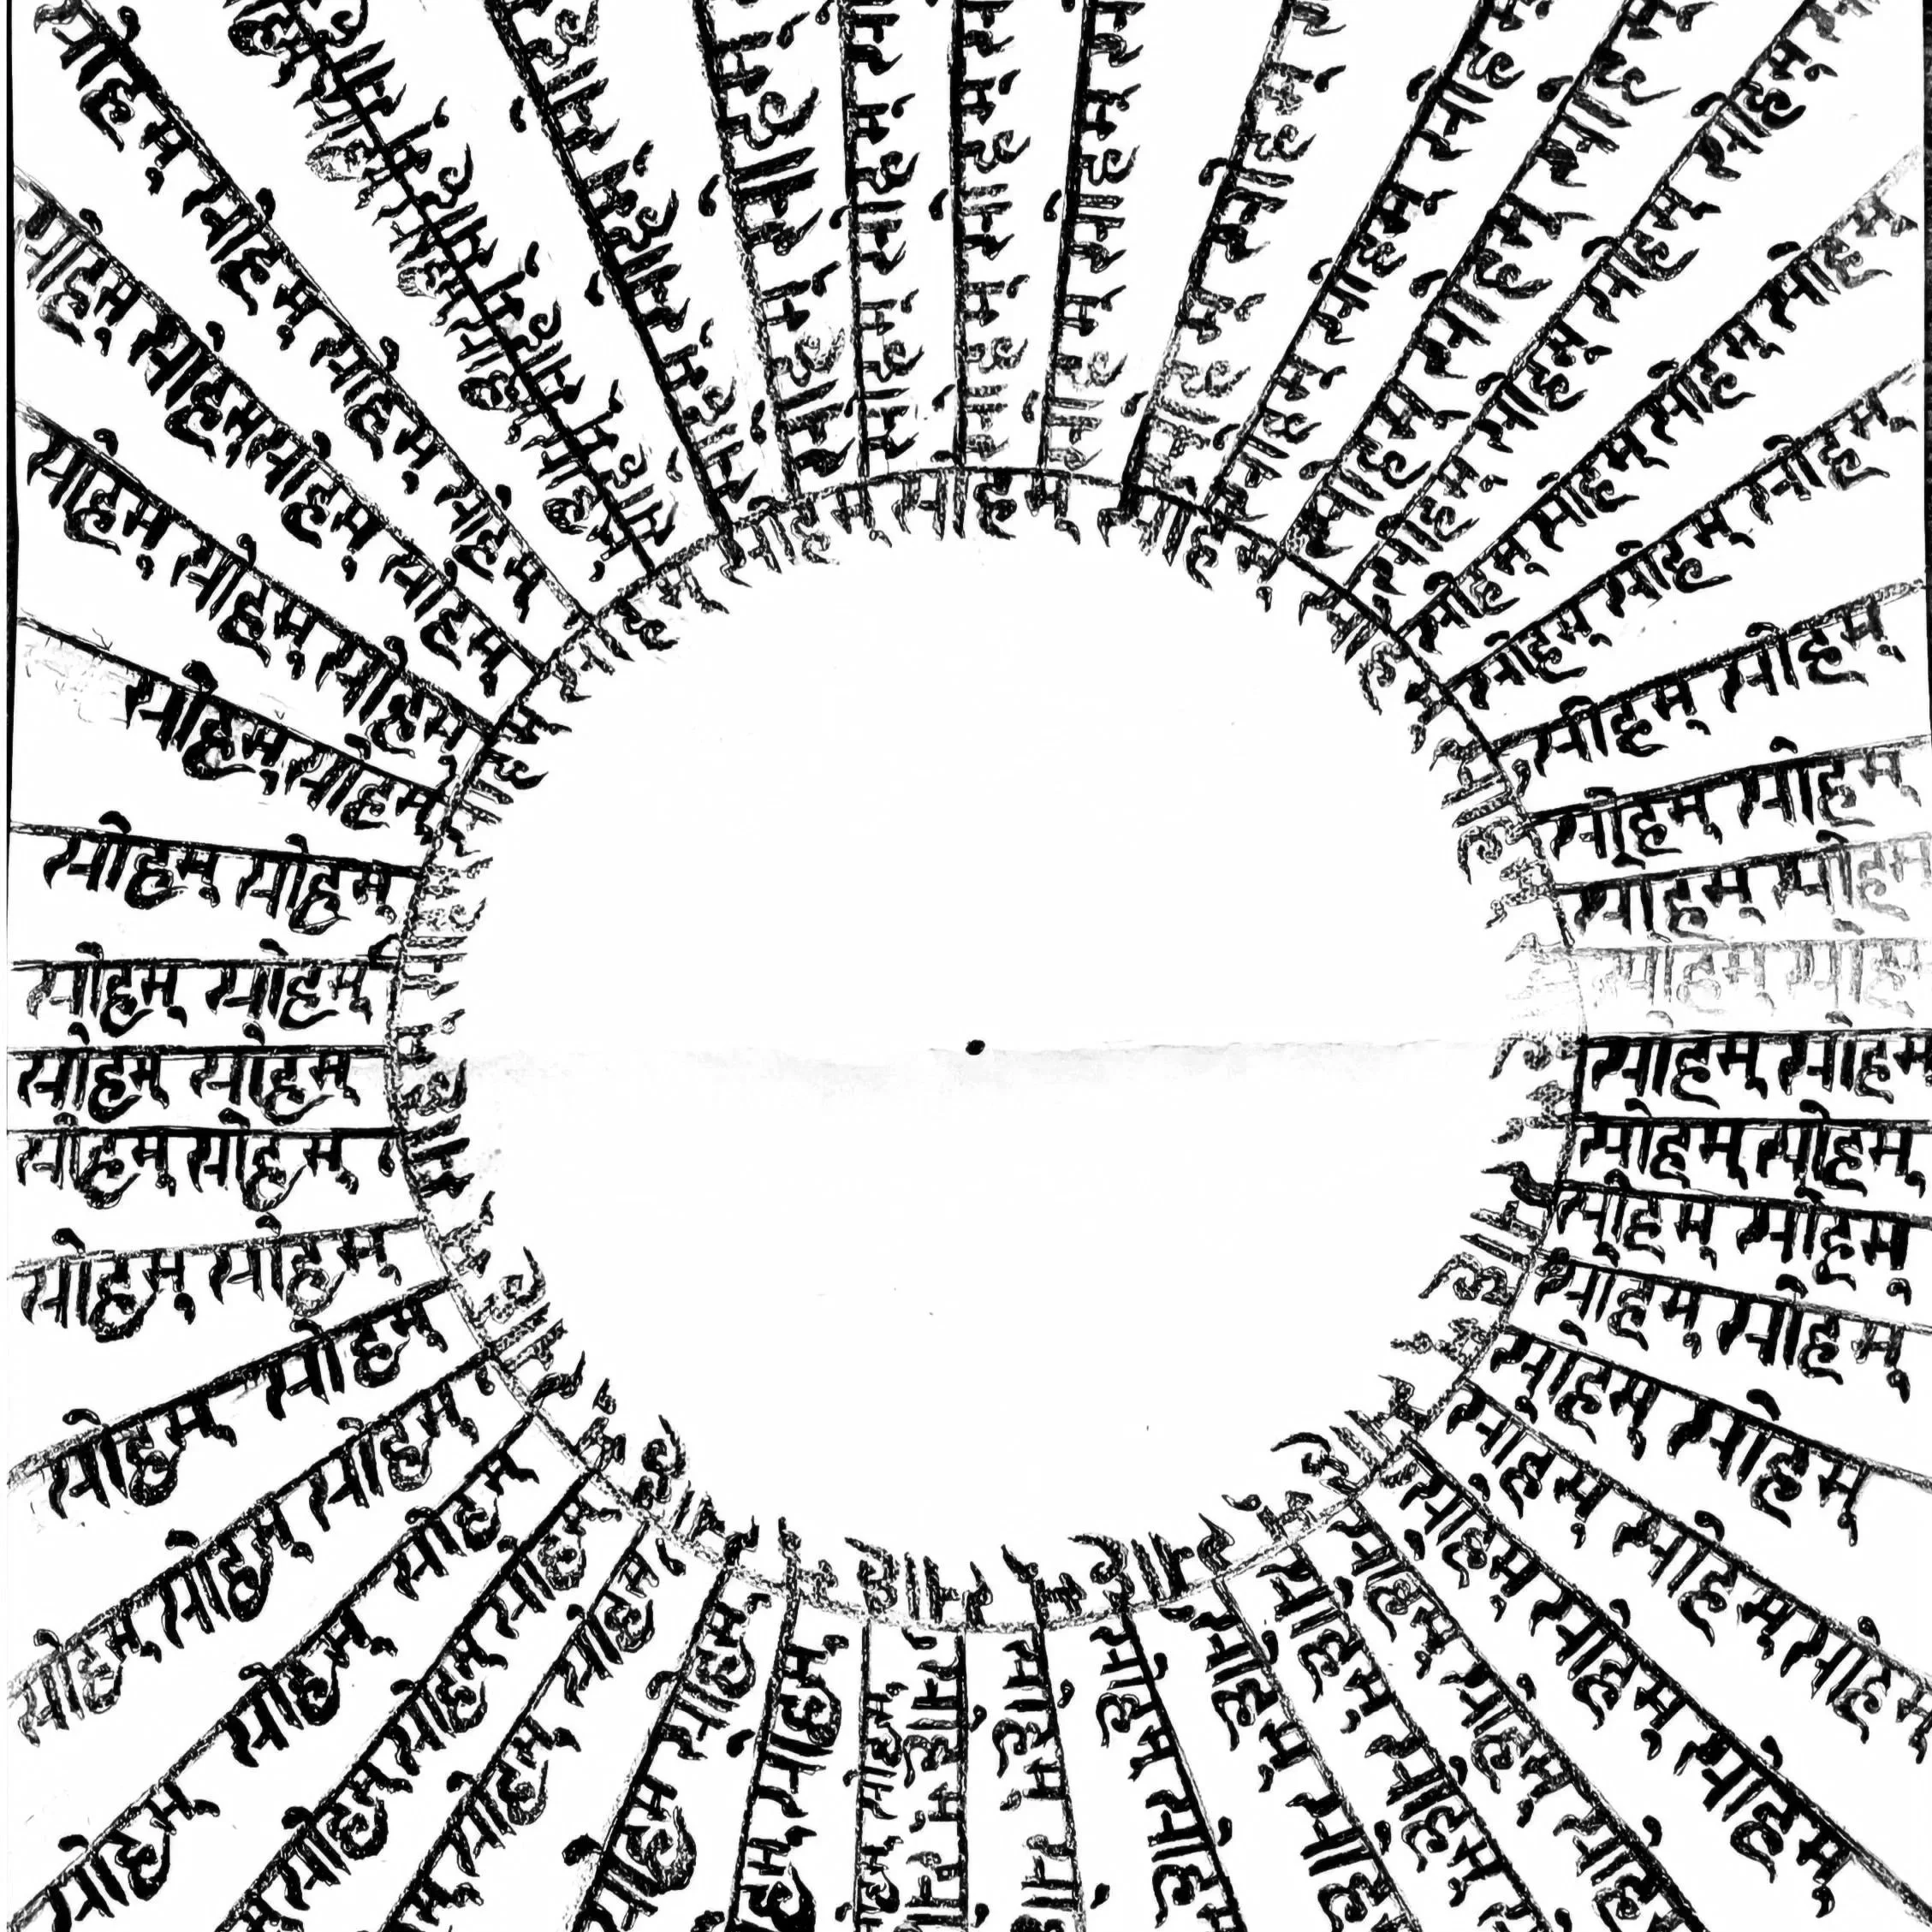 सोहम् सोहम् सोहम् सोहम् सोहम् सोहम् सोहम् सोहम् सोहम् सोहम् सोहम् सोहम् सोहम् सोहम् सोहम् सोहम्
सोहम् सोहम् सोहम्
सोहम् सोहम् सोहम्
सोहम् सोहम् सोहम्
सोहम् सोहम् सोहम्
सोहम् सोहम् सोहम्
सोहम् सोहम् सोहम् सोहम्
सोहम् सोहम् सोहम् सोहम्
सोहम् सोहम् सोहम् सोहम्
सोहम् सोहम् सोहम्
सोहम् सोहम्
सोहम् सोहम्
सोहम् सोहम्
सोहम् सोहम्
सोहम् सोहम्
सोहम् सोहम्
सोहम् सोहम्
सोहम् सोहम्
सोहम् सोहम्
सोहम् सोहम् सोहम्
सोहम् सोहम् सोहम्
सोहम् सोहम् सोहम्
सोहम् सोहम्
सोहम् सोहम्
सोहम् सोहम्
सोहम् सोहम्
सोहम् सोहम्
सोहम् सोहम्
सोहम् सोहम्
सोहम् सोहम्
सोहम् सोहम् सोहम्
सोहम् सोहम् सोहम्
सोहम् सोहम् सोहम्
सोहम् सोहम् सोहम्
सोहम् सोहम्
सोहम् सोहम्
सोहम् सोहम्
सोहम् सोहम्
सोहम् सोहम्
सोहम् सोहम्
सोहम् सोहम्
सोहम् सोहम् सोहम्
सोहम् सोहम् सोहम् सोहम्
सोहम् सोहम् सोहम् सोहम्
सोहम् सोहम् सोहम् सोहम्
सोहम् सोहम् सोहम् सोहम्
सोहम् सोहम् सोहम्
सोहम् सोहम् सोहम्